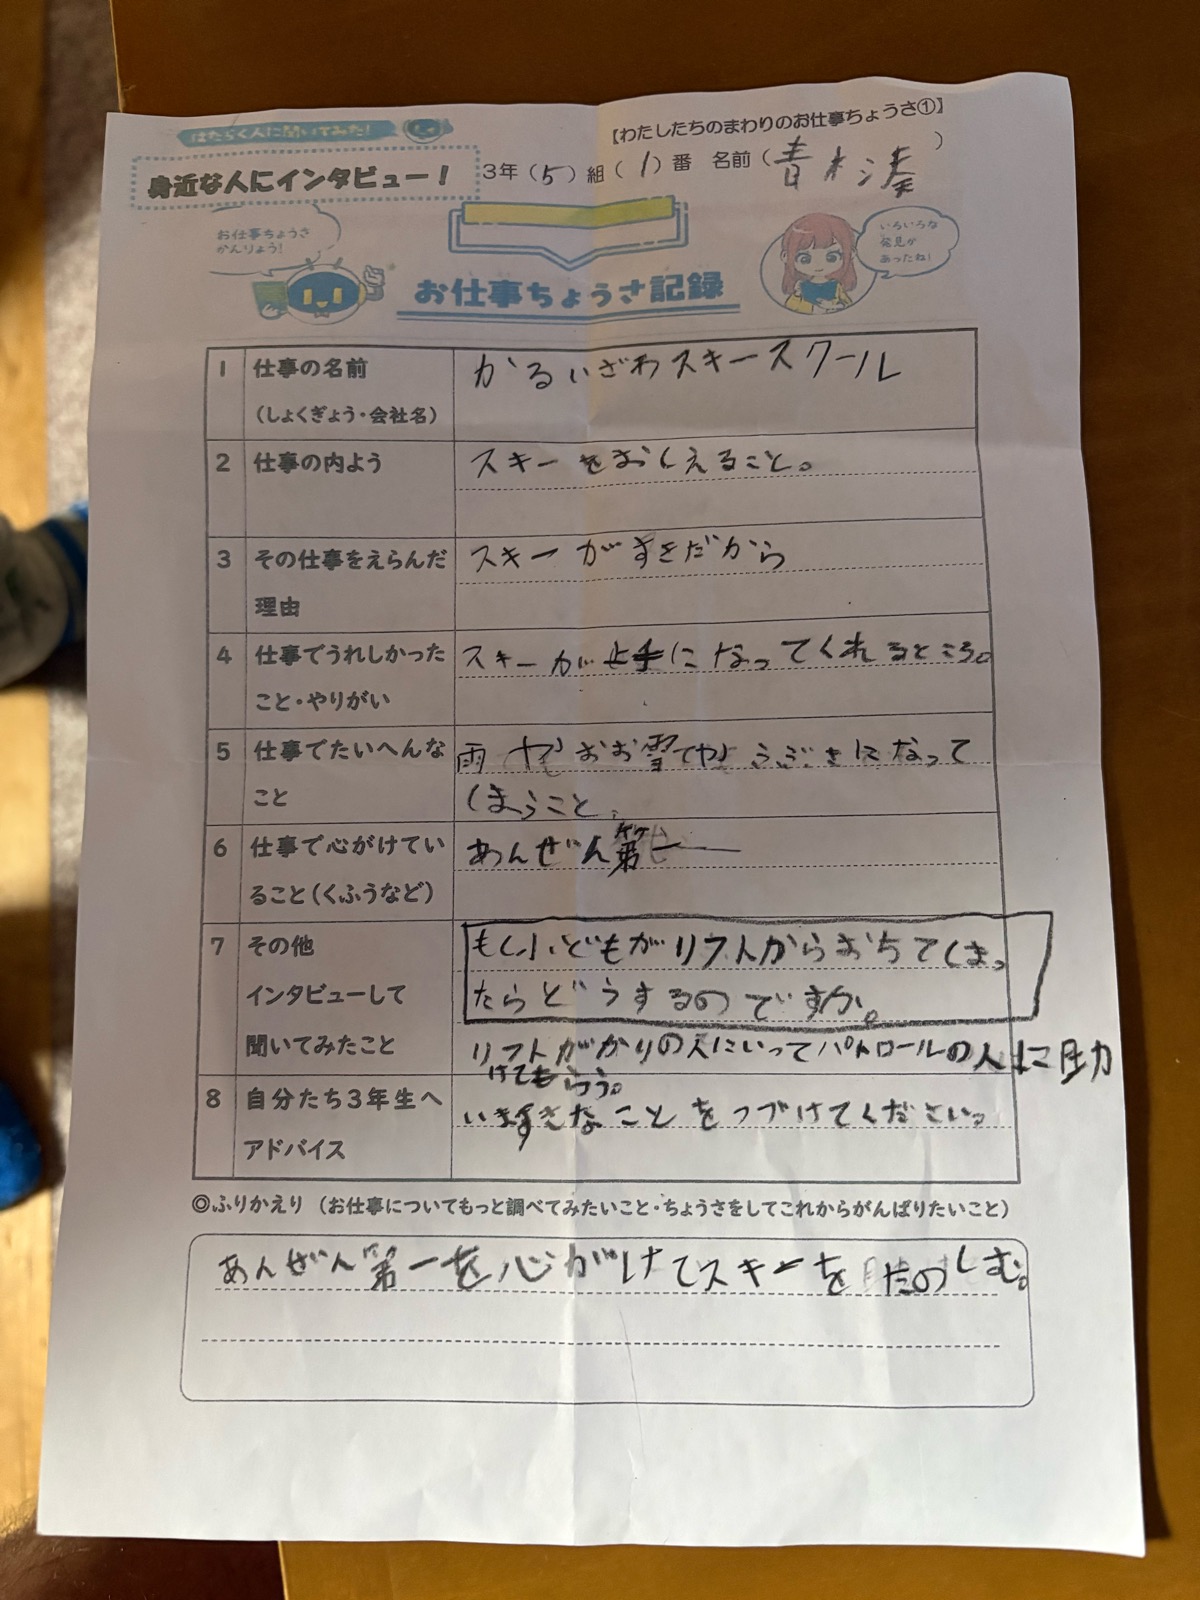 はたらく人に聞いてみた!
【わたしたちのまわりのお仕事ちょうさ①】
身近な人にインタビュー!
3年(5)組(1)番 名前(青木湊)
お仕事ちょうさ
かんりょう!
いろいろな
発見が
あったね!
お仕事ちょうさ記録
1 仕事の名前
(しょくぎょう・会社名)
かるいざわスキースクール
2 仕事の内よう
スキーをおしえること。
3 その仕事をえらんだ
理由
スキーがすきだから
4 仕事でうれしかった
こと・やりがい
スキーが上手になってくれるところ。
5 仕事でたいへんな
こと
雨やおお雪でふぶきになって
しまうこと
6 仕事で心がけてい
ること(くふうなど)
あんぜん第一
7 その他
インタビューして
聞いてみたこと
もし小どもがリフトからおちてしまっ
たらどうするのですか。
リフトがかりの人にいってパトロールの人に助
けてもらう。
8 自分たち3年生へ
アドバイス
いますきなことをつづけてください。
◎ふりかえり (お仕事についてもっと調べてみたいこと・ちょうさをしてこれからがんばりたいこと)
あんぜん第一を心がけてスキーをたのしむ。